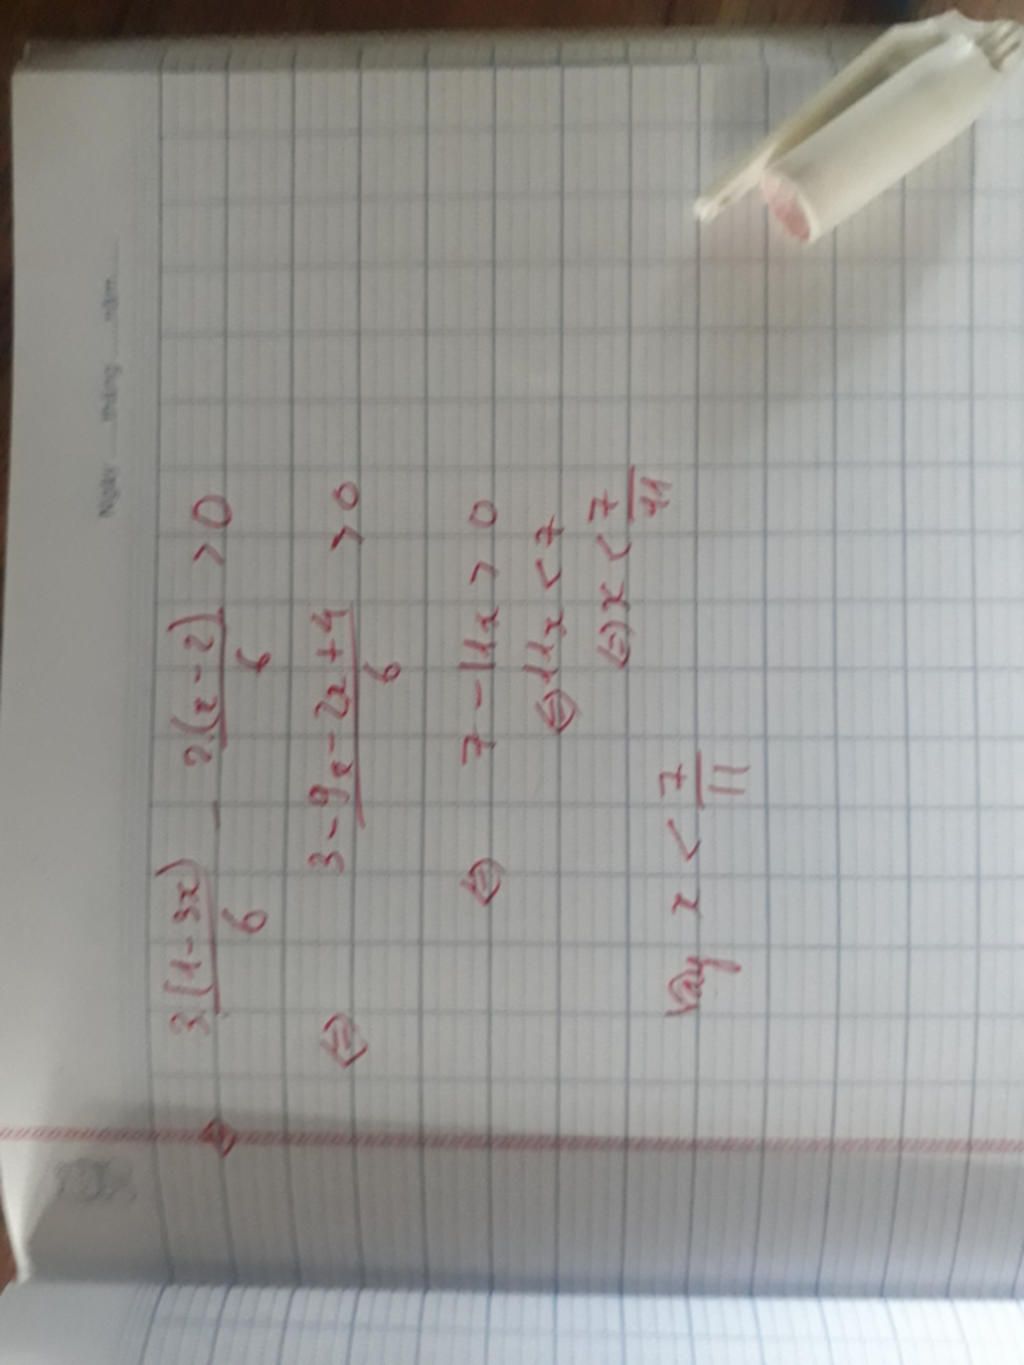 Ngày ...... tháng ...... năm......
⇔ 3(1-3x)/6 - 2(x-2)/6 > 0
⇔ (3-9x-2x+4)/6 > 0
⇔ 7-11x > 0
⇔ 11x < 7
⇔ x < 7/11
Vậy x < 7/11